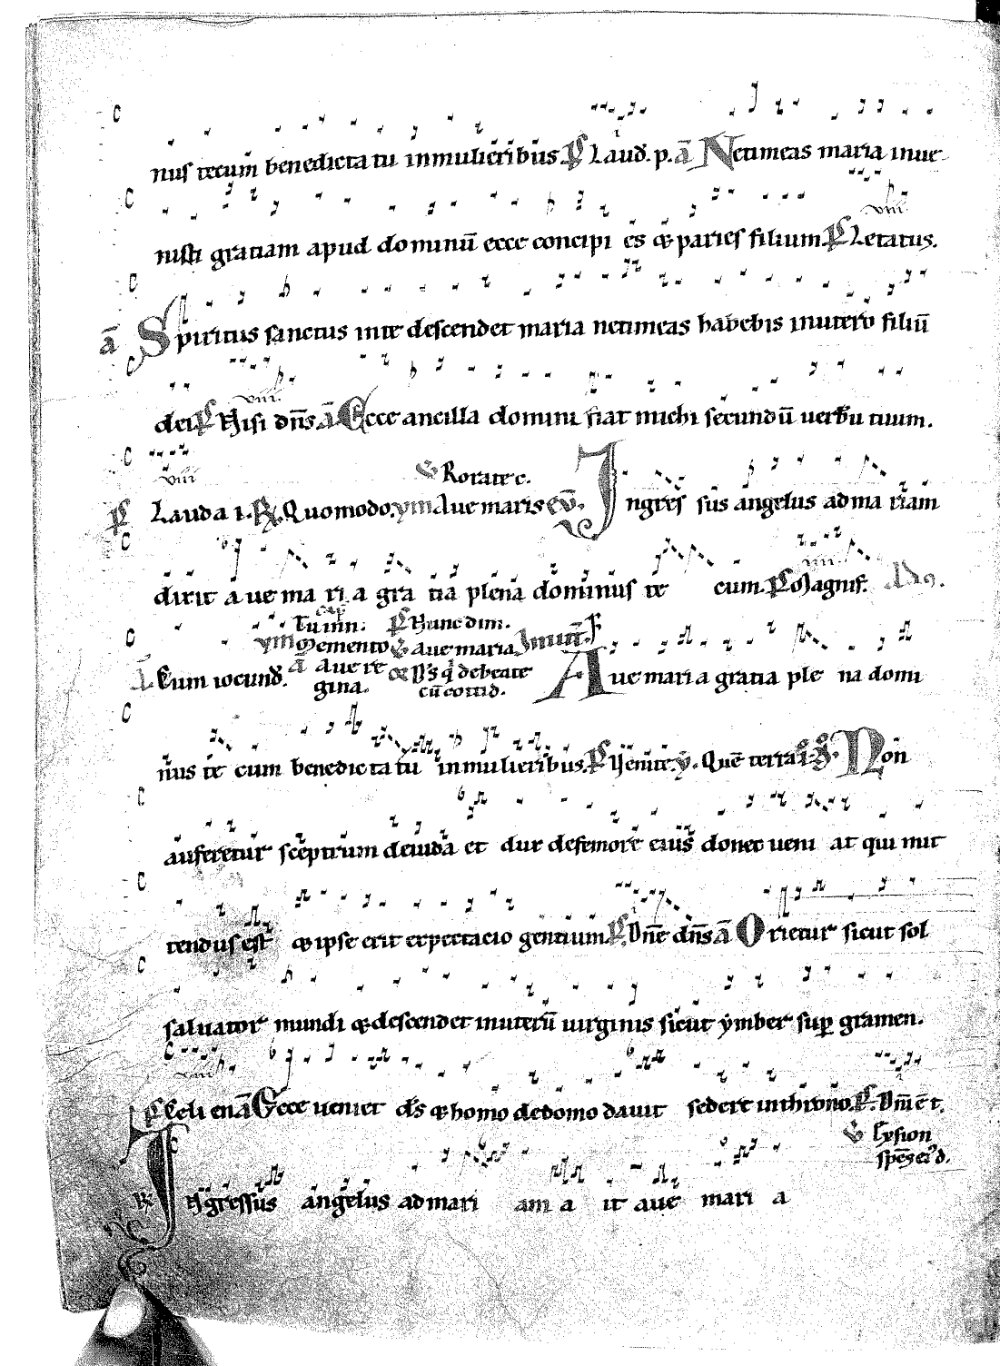 nus tecum benedicta tu inmulieribus. Ps Laud. p. a Netimeas maria inue
nisti gratiam apud dominū ecce concipi es & paries filium. Ps Letatus.
viii
a Spiritus sanctus inte descendet maria netimeas habebis inutero filiū
dei Ps Nisi dn̄s a Ecce ancilla domini fiat michi secundū uerbū tuum.
viii.
viii V Rorate c.
Ps Lauda i. R. Quomodo. ym Aue maris ev̄. Ingres sus angelus adma riam
dixit a ue ma ri a gra tia plena dominus te cum. Ps Magnif.
iiii.
Tu inn: Ps Nunc dim.
ym Memento V aue maria Inuit
Cum iocund. a aue re gina. A ue maria gratia ple na domi
cū cottid.
nus te cum benedicta tu inmulieribus. Ps Venite. y. Que terra Non
auferetur sceptrum deiuda et dux defemore eius donec ueni at qui mit
tendus est & ipse erit expectacio gentium. Ps. Dn̄e dn̄s a Orietur sicut sol
saluator mundi & descendet inuterū uirginis sicut ymber sup gramen.
viii
Ps Celi enā Ecce ueniet ds & homo dedomo dauit sedere inthrono. Ps. Dn̄i ē t.
V Egypsion
R Ingressus angelus ad mari am a it aue mari a